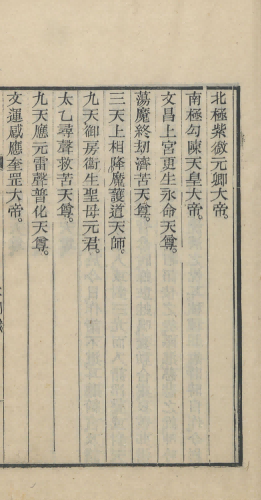 北極紫微元卿大帝。
南極勾陳天皇大帝。
文昌上宮更生永命天尊。
蕩魔終劫濟苦天尊。
三天上相降魔護道天師。
九天御房衞生聖母元君。
太乙尋聲救苦天尊。
九天應元雷聲普化天尊。
文運感應奎罡大帝。